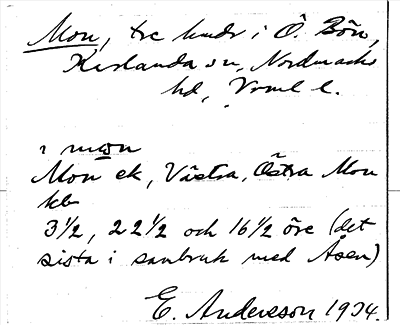 Mon, tre hmdr i Ö. Bön,
Karlanda sn, Nordmarks
hd, Vrml l.
i mɷn
Mon ek, Västra, Östra Mon
kb
3½, 22½ och 16½ öre (det
sista i sambruk med Åsen)
E. Andersson 1934.